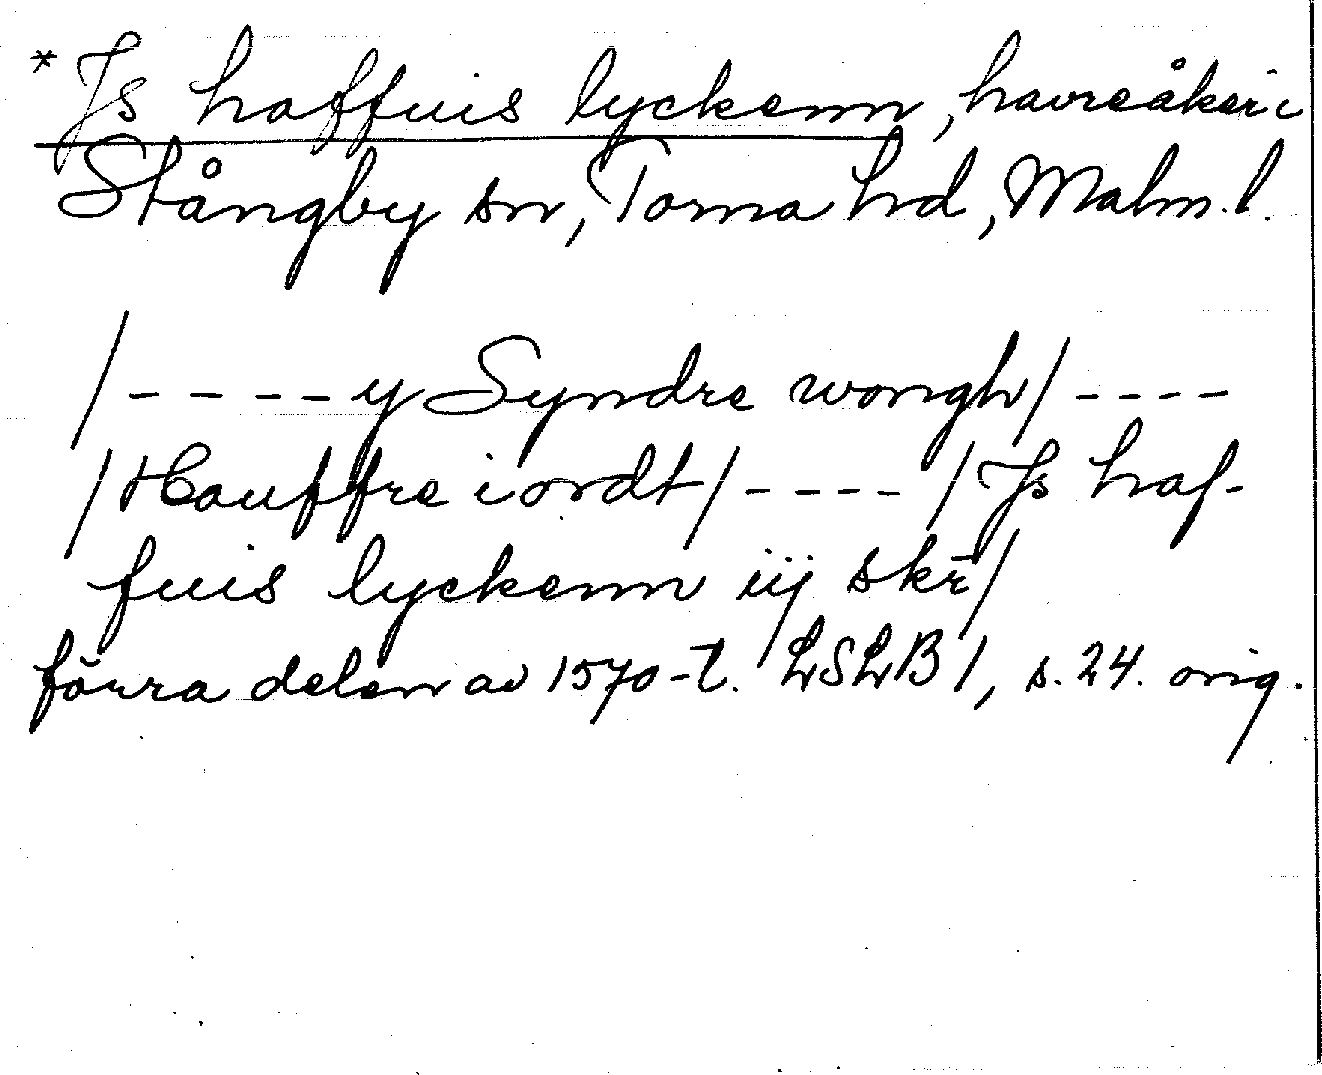 * Js haffuis lyckenn, havreåker i
Stångby sn, Torna hd, Malm. l.
/----y Syndre wongh/----
/Hauffre iordt/----/Js haf-
fuis lyckenn iij skr̄/
förra delen av 1570-t. LSLB 1, s. 24. orig.